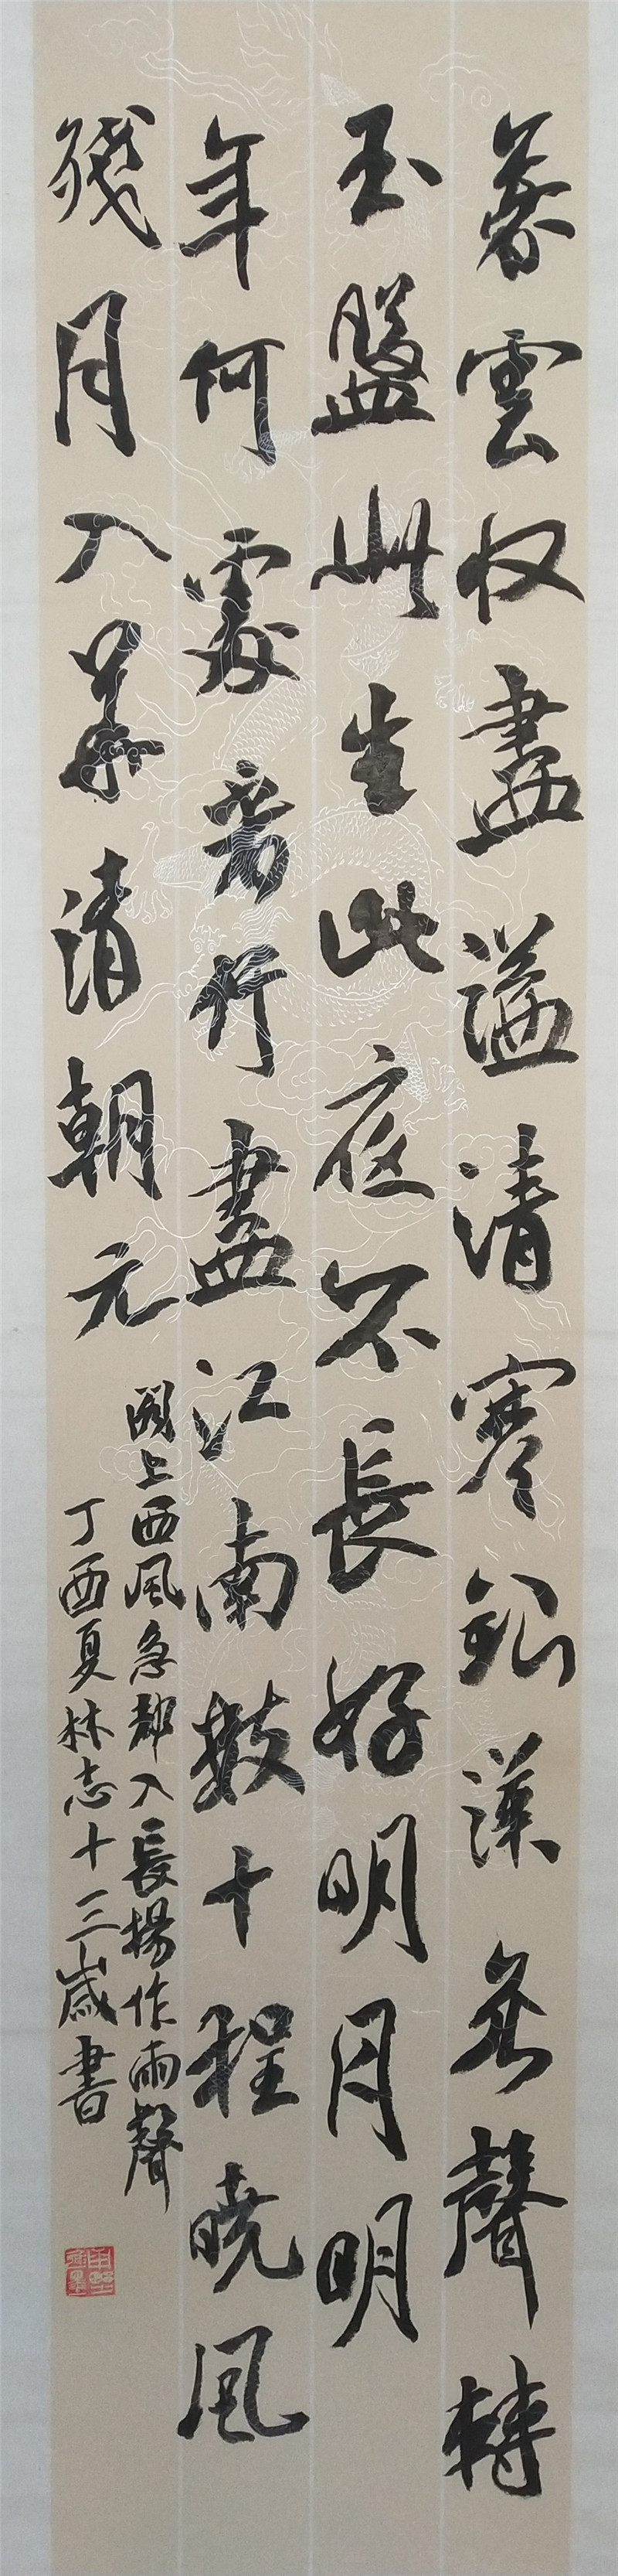 暮雲收盡溢清寒銀漢無聲轉
玉盤此生此夜不長好明月明
年何處看行盡江南數十程曉風
殘月入華清朝元
閣上西風急都入長楊作雨聲
丁酉夏林志十三歲書